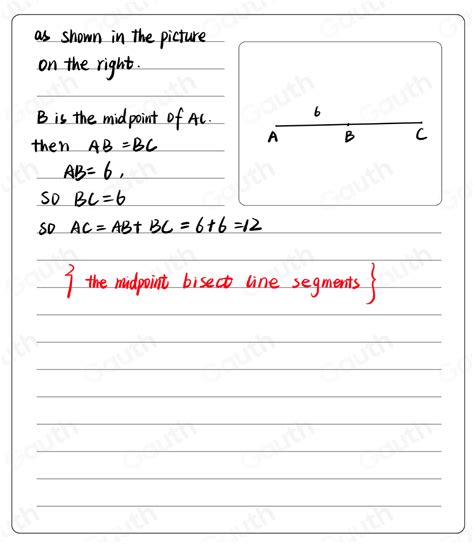 as shown in the picture
on the right.
B is the midpoint of AC.
then AB = BC
AB = 6,
so BC = 6
so AC = AB + BC = 6+6 = 12
{ the midpoint bisect line segments }
6
A B C